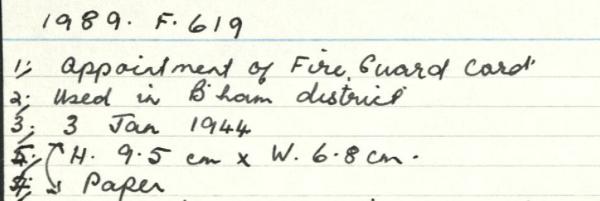 1989. F. 619
1; Appointment of Fire Guard Card
2; Used in B'ham district
3; 3 Jan 1944
5; H. 9.5 cm x W. 6.8 cm.
4; Paper